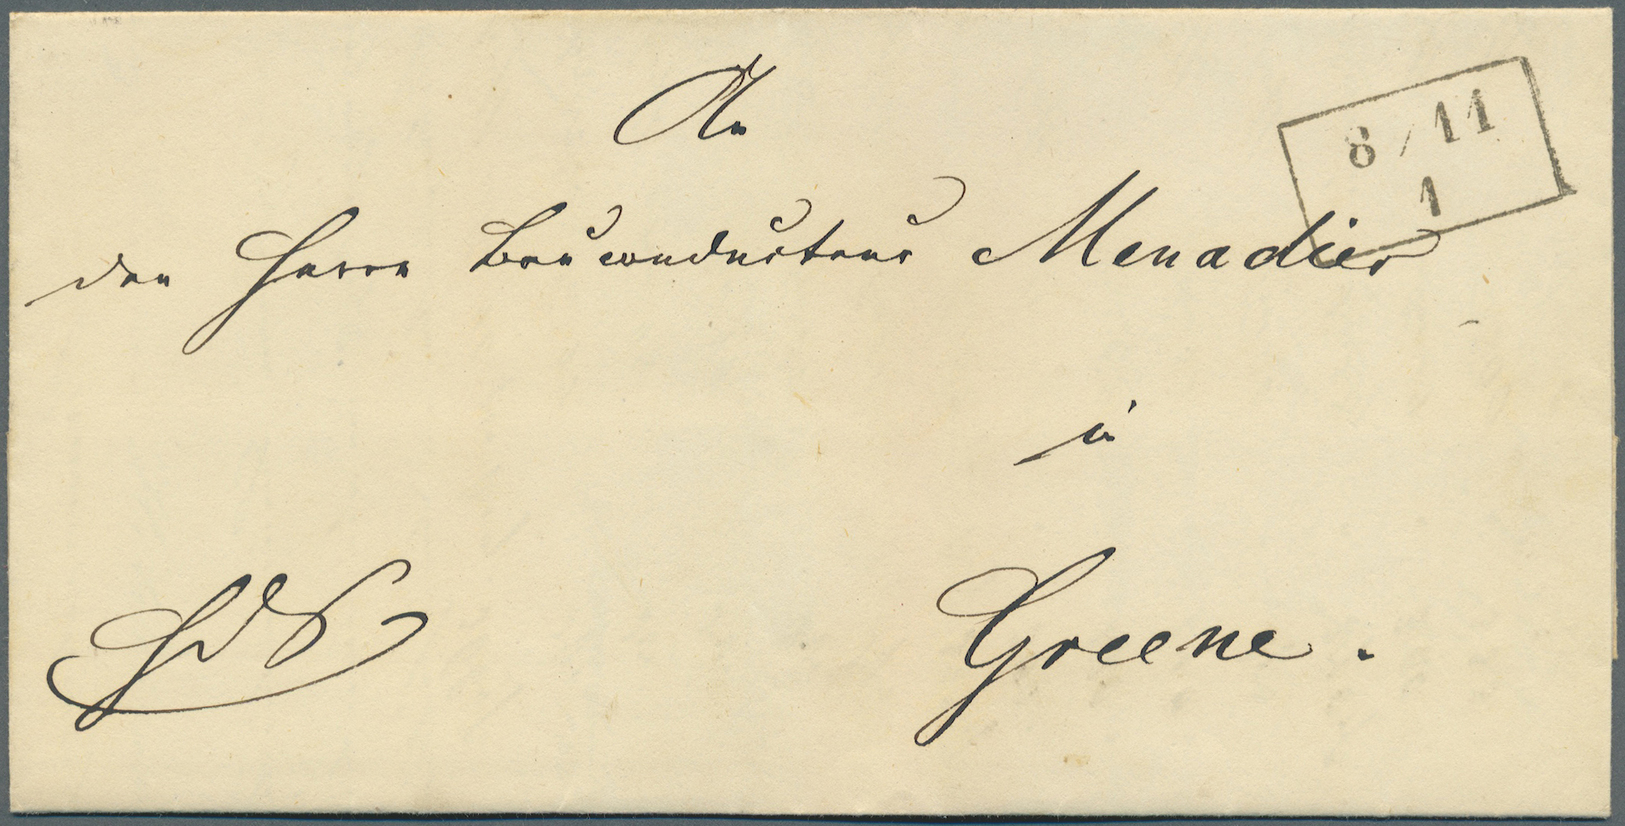 An
8/11
1
den Herrn Bauconducteur Menadier
in
Greene.
HdS